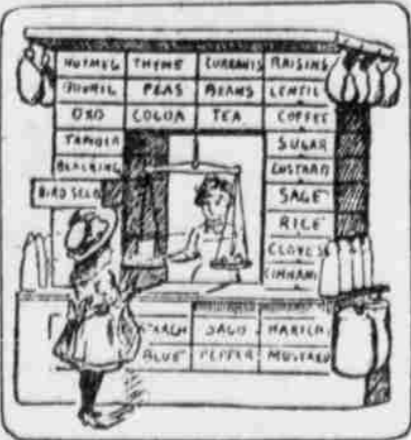 NUTMEG THYME CURRANTS RAISINS
BOVRIL PEAS BEANS LENTIL
OXO COCOA TEA COFFEE
TAPIOCA SUGAR
BLACKING CUSTARD
BIRD SEED SAGE
RICE
CLOVES
CINNAMO
STARCH SAGO HARICO
BLUE PEPPER MUSTARD